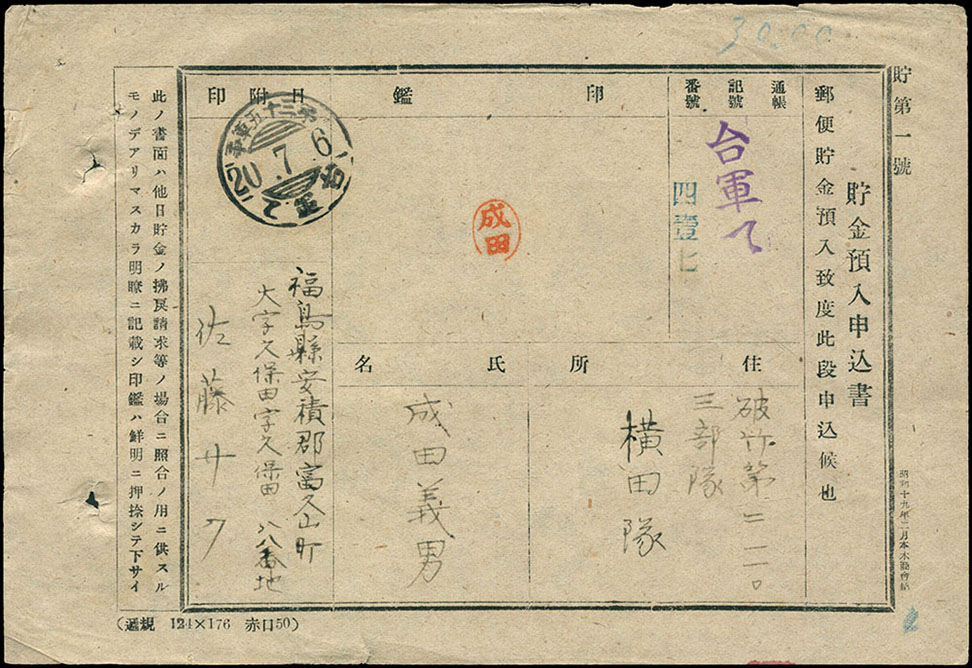 30.00
貯第一號
貯金預入申込書
郵便貯金預入致度此段申込候也
昭和十九年二月
通帳
記號
番號
台軍て
四壹七
印鑑
成田
日附印
第三十五軍事
20.7.6
台軍て
住所
三部隊
横田隊
氏名
成田義男
福島縣安積郡富久山町
大字久保田字久保田 八八番地
佐藤サク
此ノ書面ハ他日貯金ノ拂戾請求等ノ場合ニ照合ノ用ニ供スル
モノデアリマスカラ明瞭ニ記載シ印鑑ハ鮮明ニ押捺シテ下サイ
(遞規 124×176 赤口50)